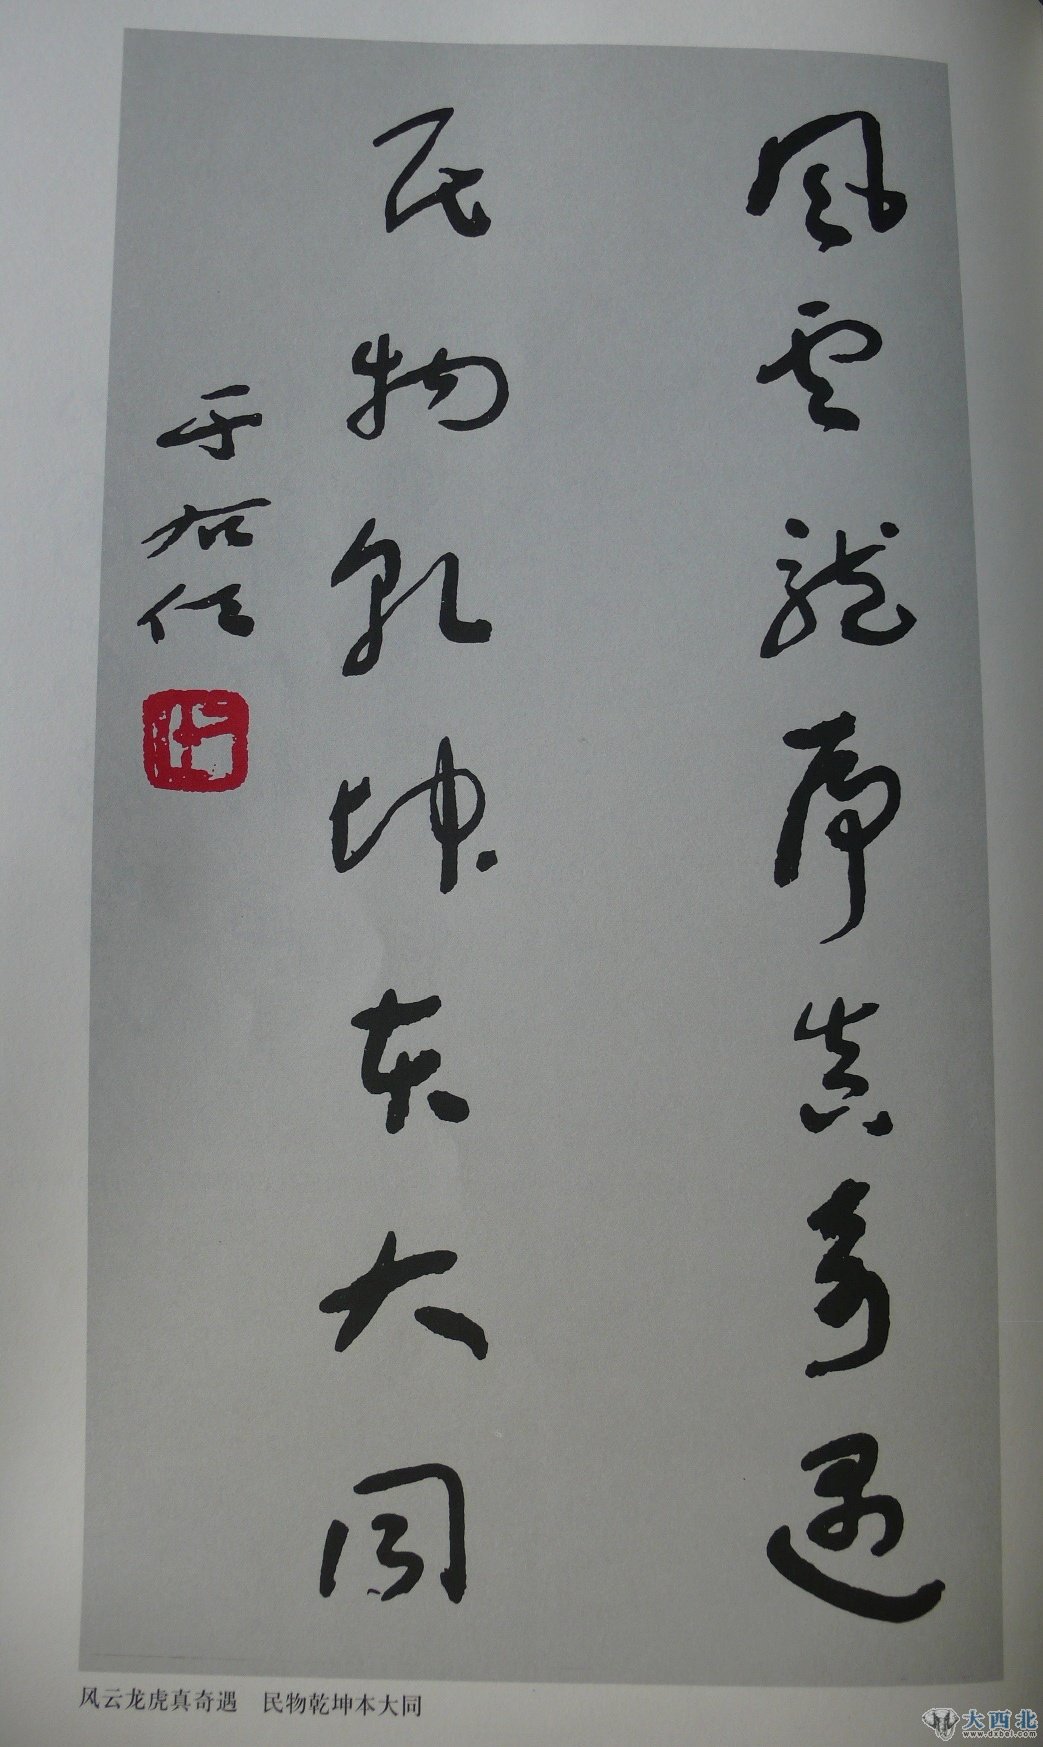 風雲龍虎真奇遇
民物乾坤本大同
于右任
风云龙虎真奇遇　民物乾坤本大同
大西北
www.dxbei.com